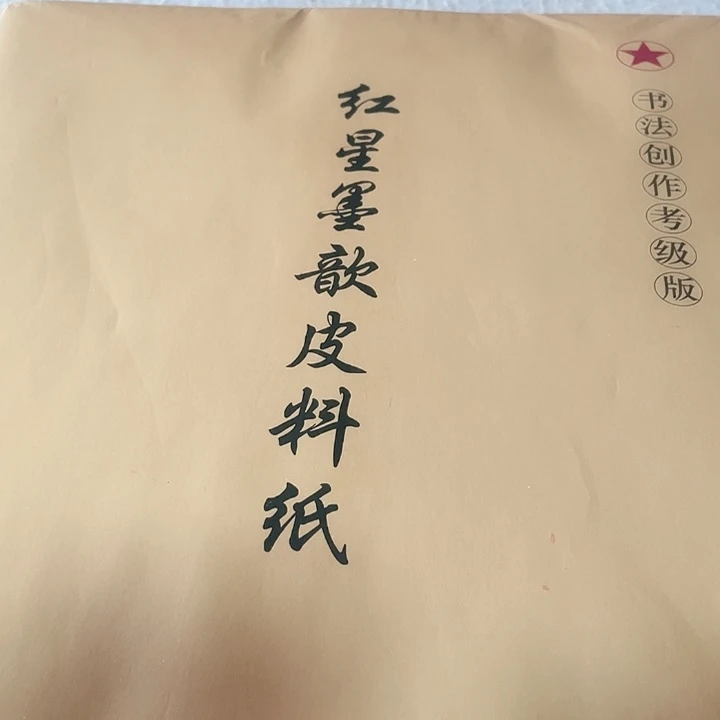 书法创作考级版
红星墨歆皮料纸